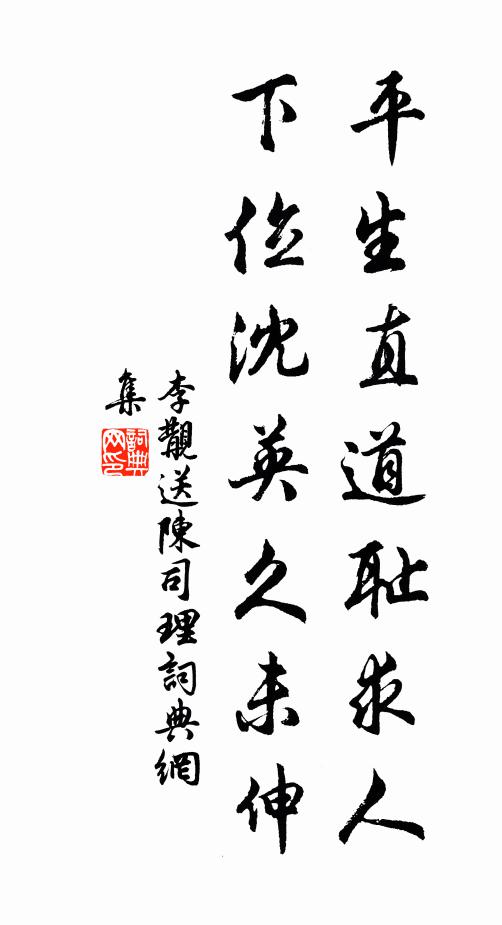 平生直道耻求人
下位沈英久未伸
李覯送陳司理詞典網
集
詞典
网